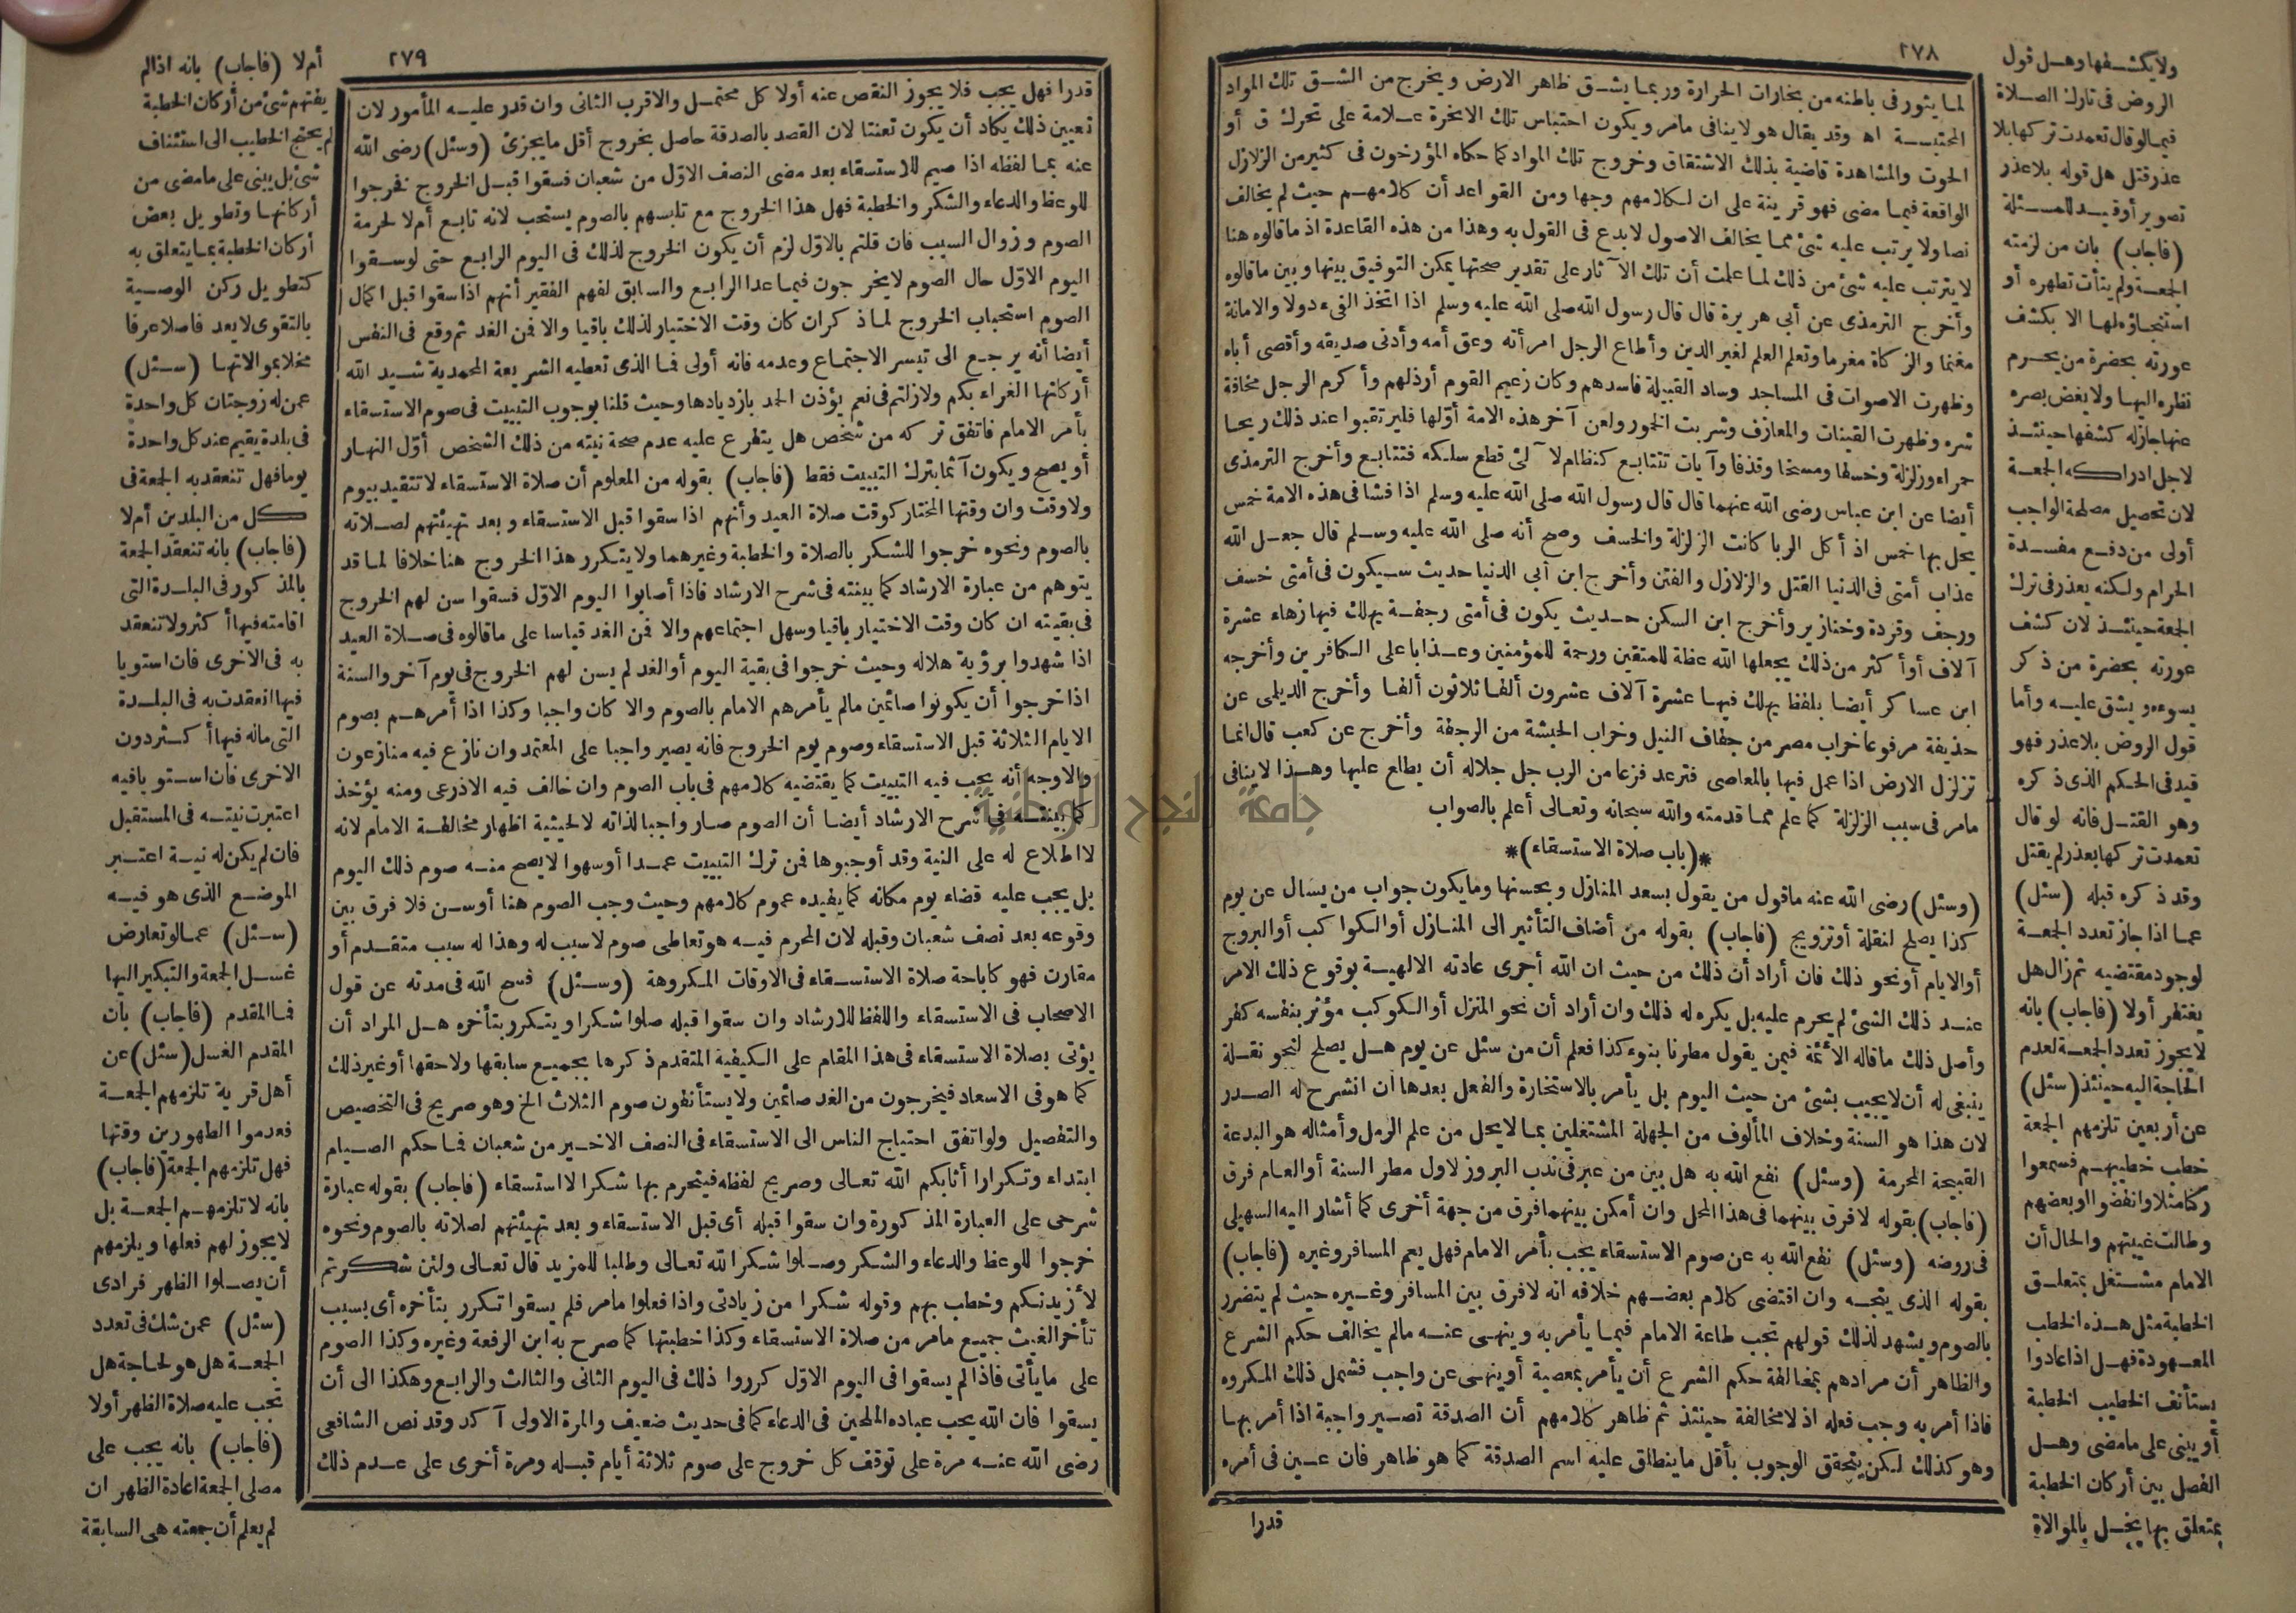 ٢٧٨
لما يثور فى باطنه من بخارات الحرارة وربما يشق ظاهر الارض ويخرج من الشق تلك المواد
المحتبسة اه وقد يقال هو لا ينافى ما مر ويكون احتباس تلك الابخرة علامة على تحرك ق أو
الحوت والمشاهدة قاضية بذلك الاشتقاق وخروج تلك المواد كما حكاه المؤرخون فى كثير من الزلازل
الواقعة فيما مضى فهو قرينة على ان لكلامهم وجها ومن القواعد أن كلامهم حيث لم يخالف
نصا ولا يرتب عليه شئ مما يخالف الاصول لا بدع فى القول به وهذا من هذه القاعدة اذ ما قالوه هنا
لا يترتب عليه شئ من ذلك لما علمت أن تلك الآثار على تقدير صحتها يمكن التوفيق بينها وبين ما قالوه
وأخرج الترمذى عن أبى هريرة قال قال رسول الله صلى الله عليه وسلم اذا اتخذ الفىء دولا والامانة
مغنما والزكاة مغرما وتعلم العلم لغير الدين وأطاع الرجل امرأته وعق أمه وأدنى صديقه وأقصى أباه
وظهرت الاصوات فى المساجد وساد القبيلة فاسدهم وكان زعيم القوم أرذلهم وأكرم الرجل مخافة
شره وظهرت القينات والمعازف وشربت الخمور ولعن آخر هذه الامة أولها فليرتقبوا عند ذلك ريحا
حمراء وزلزلة وخسفا ومسخا وقذفا وآيات تتتابع كنظام لآلئ قطع سلكه فتتابع وأخرج الترمذى
أيضا عن ابن عباس رضى الله عنهما قال قال رسول الله صلى الله عليه وسلم اذا فشا فى هذه الامة خمس
يحل بها خمس اذ أكل الربا كانت الزلزلة والخسف وصح أنه صلى الله عليه وسلم قال جعل الله
عذاب أمتى فى الدنيا القتل والزلازل والفتن وأخرج ابن أبى الدنيا حديث سيكون فى أمتى خسف
ورجف وقردة وخنازير وأخرج ابن السكن حديث يكون فى أمتى رجفة يهلك فيها زهاء عشرة
آلاف أو أكثر من ذلك يجعلها الله عظة للمتقين ورحمة للمؤمنين وعذابا على الكافرين وأخرجه
ابن عساكر أيضا بلفظ يهلك فيها عشرة آلاف عشرون ألفا ثلاثون ألفا وأخرج الديلمى عن
حذيفة مرفوعا خراب مصر من جفاف النيل وخراب الحبشة من الرجفة وأخرج عن كعب قال انما
تزلزل الارض اذا عمل فيها بالمعاصى فترعد فزعا من الرب جل جلاله أن يطلع عليها وهذا لا ينافى
ما مر فى سبب الزلزلة كما علم مما قدمته والله سبحانه وتعالى أعلم بالصواب
*(باب صلاة الاستسقاء)*
(وسئل) رضى الله عنه ما قول من يقول بسعد المنازل وبحسنها وما يكون جواب من يسال عن يوم
كذا يصلح لنقلة أو تزويج (فاجاب) بقوله من أضاف التأثير الى المنازل أو الكواكب أو البروج
أو الايام أو نحو ذلك فان أراد أن ذلك من حيث ان الله أجرى عادته الالهية بوقوع ذلك الامر
عند ذلك الشئ لم يحرم عليه بل يكره له ذلك وان أراد أن نحو المنزل أو الكوكب مؤثر بنفسه كفر
وأصل ذلك ما قاله الأئمة فيمن يقول مطرنا بنوء كذا فعلم أن من سئل عن يوم هل يصلح لنحو نقلة
ينبغى له أن لا يجيب بشئ من حيث اليوم بل يأمر بالاستخارة والفعل بعدها ان انشرح له الصدر
لان هذا هو السنة وخلاف المألوف من الجهلة المشتغلين بما لا يحل من علم الرمل وأمثاله هو البدعة
القبيحة المحرمة (وسئل) نفع الله به هل بين من عبر فى ندب البروز لاول مطر السنة أو العام فرق
(فاجاب) بقوله لا فرق بينهما فى هذا المحل وان أمكن بينهما فرق من جهة أخرى كما أشار اليه السهيلى
فى روضه (وسئل) نفع الله به عن صوم الاستسقاء يجب بأمر الامام فهل يعم المسافر وغيره (فاجاب)
بقوله الذى يتجه وان اقتضى كلام بعضهم خلافه انه لا فرق بين المسافر وغيره حيث لم يتضرر
بالصوم ويشهد لذلك قولهم تجب طاعة الامام فيما يأمر به وينهى عنه ما لم يخالف حكم الشرع
والظاهر أن مرادهم بمخالفة حكم الشرع أن يأمر بمعصية أو ينهى عن واجب فشمل ذلك المكروه
فاذا أمر به وجب فعله اذ لا مخالفة حينئذ ثم ظاهر كلامهم أن الصدقة تصير واجبة اذا أمر بها
وهو كذلك لكن يتحقق الوجوب بأقل ما ينطلق عليه اسم الصدقة كما هو ظاهر فان عين فى أمره
قدرا
ولا يكشفها وهل قول
الروض فى تارك الصلاة
فيما لو قال تعمدت تركها بلا
عذر قتل هل قوله بلا عذر
تصوير أو قيد للمسئلة
(فاجاب) بان من لزمته
الجمعة ولم يتأت تطهره أو
استنجاؤه لها الا بكشف
عورته بحضرة من يحرم
نظره اليها ولا يغض بصره
عنها جاز له كشفها حينئذ
لاجل ادراكه الجمعة
لان تحصيل مصلحة الواجب
أولى من دفع مفسدة
الحرام ولكنه يعذر فى ترك
الجمعة حينئذ لان كشف
عورته بحضرة من ذكر
يسوءه ويشق عليه وأما
قول الروض بلا عذر فهو
قيد فى الحكم الذى ذكره
وهو القتل فانه لو قال
تعمدت تركها بعذر لم يقتل
وقد ذكره قبله (سئل)
عما اذا جاز تعدد الجمعة
لوجود مقتضيه ثم زال هل
يغتفر أولا (فاجاب) بانه
لا يجوز تعدد الجمعة لعدم
الحاجة اليه حينئذ (سئل)
عن أربعين تلزمهم الجمعة
خطب خطيبهم فسمعوا
ركا مثلا وانفضوا او بعضهم
وطالت غيبتهم والحال أن
الامام مشتغل بمتعلق
الخطبة مثل هذه الخطب
المعهودة فهل اذا عادوا
يستأنف الخطيب الخطبة
أو يبنى على ما مضى وهل
الفصل بين أركان الخطبة
بمتعلق بها يخل بالموالاة
٢٧٩
قدرا فهل يجب فلا يجوز النقص عنه أولا كل محتمل والاقرب الثانى وان قدر عليه المأمور لان
تعيين ذلك يكاد أن يكون تعنتا لان القصد بالصدقة حاصل بخروج أقل ما يجزئ (وسئل) رضى الله
عنه بما لفظه اذا صيم للاستسقاء بعد مضى النصف الاول من شعبان فسقوا قبل الخروج فخرجوا
للوعظ والدعاء والشكر والخطبة فهل هذا الخروج مع تلبسهم بالصوم يستحب لانه تابع أم لا لحرمة
الصوم وزوال السبب فان قلتم بالاول لزم أن يكون الخروج لذلك فى اليوم الرابع حتى لو سقوا
اليوم الاول حال الصوم لا يخرجون فيما عدا الرابع والسابق لفهم الفقير أنهم اذا سقوا قبل اكمال
الصوم استحباب الخروج لما ذكران كان وقت الاختيار لذلك باقيا والا فمن الغد ثم وقع فى النفس
أيضا أنه يرجع الى تيسر الاجتماع وعدمه فانه أولى فما الذى تعطيه الشريعة المحمدية شيد الله
أركانها الغراء بكم ولا زلتم فى نعم يؤذن الحمد بازديادها وحيث قلنا بوجوب التبييت فى صوم الاستسقاء
بأمر الامام فاتفق تركه من شخص هل يتفرع عليه عدم صحة نيته من ذلك الشخص أول النهار
أو يصح ويكون آثما بترك التبييت فقط (فاجاب) بقوله من المعلوم أن صلاة الاستسقاء لا تتقيد بيوم
ولا وقت وان وقتها المختار كوقت صلاة العيد وأنهم اذا سقوا قبل الاستسقاء وبعد تهيئتهم لصلاته
بالصوم ونحوه خرجوا للشكر بالصلاة والخطبة وغيرهما ولا يتكرر هذا الخروج هنا خلافا لما قد
يتوهم من عبارة الارشاد كما بينته فى شرح الارشاد فاذا أصابوا اليوم الاول فسقوا سن لهم الخروج
فى بقيته ان كان وقت الاختيار باقيا وسهل اجتماعهم والا فمن الغد قياسا على ما قالوه فى صلاة العيد
اذا شهدوا برؤية هلاله وحيث خرجوا فى بقية اليوم أو الغد لم يسن لهم الخروج فى يوم آخر والسنة
اذا خرجوا أن يكونوا صائمين ما لم يأمرهم الامام بالصوم والا كان واجبا وكذا اذا أمرهم بصوم
الايام الثلاثة قبل الاستسقاء وصوم يوم الخروج فانه يصير واجبا على المعتمد وان نازع فيه منازعون
والاوجه أنه يجب فيه التبييت كما يقتضيه كلامهم فى باب الصوم وان خالف فيه الاذرعى ومنه يؤخذ
كما بينته فى شرح الارشاد أيضا أن الصوم صار واجبا لذاته لا لحيثية اظهار مخالفة الامام لانه
لا اطلاع له على النية وقد أوجبوها فمن ترك التبييت عمدا أو سهوا لا يصح منه صوم ذلك اليوم
بل يجب عليه قضاء يوم مكانه كما يفيده عموم كلامهم وحيث وجب الصوم هنا أو سن فلا فرق بين
وقوعه بعد نصف شعبان وقبله لان المحرم فيه هو تعاطى صوم لا سبب له وهذا له سبب متقدم أو
مقارن فهو كاباحة صلاة الاستسقاء فى الاوقات المكروهة (وسئل) فسح الله فى مدته عن قول
الاصحاب فى الاستسقاء واللفظ للارشاد وان سقوا قبله صلوا شكرا ويتكرر بتأخره هل المراد أن
يؤتى بصلاة الاستسقاء فى هذا المقام على الكيفية المتقدم ذكرها بجميع سابقها ولاحقها أو غير ذلك
كما هو فى الاسعاد فيخرجون من الغد صائمين ولا يستأنفون صوم الثلاث الخ وهو صريح فى التخصيص
والتفصيل ولو اتفق احتياج الناس الى الاستسقاء فى النصف الاخير من شعبان فما حكم الصيام
ابتداء وتكرارا أثابكم الله تعالى وصريح لفظه فيتحرم بها شكرا لا استسقاء (فاجاب) بقوله عبارة
شرحى على العبارة المذكورة وان سقوا قبله أى قبل الاستسقاء وبعد تهيئتهم لصلاته بالصوم ونحوه
خرجوا للوعظ والدعاء والشكر وصلوا شكرا لله تعالى وطلبا للمزيد قال تعالى ولئن شكرتم
لأزيدنكم وخطب بهم وقوله شكرا من زيادتى واذا فعلوا ما مر فلم يسقوا تكرر بتأخره أى بسبب
تأخر الغيث جميع ما مر من صلاة الاستسقاء وكذا خطبتها كما صرح به ابن الرفعة وغيره وكذا الصوم
على ما يأتى فاذا لم يسقوا فى اليوم الاول كرروا ذلك فى اليوم الثانى والثالث والرابع وهكذا الى أن
يسقوا فان الله يحب عباده الملحين فى الدعاء كما فى حديث ضعيف والمرة الاولى آكد وقد نص الشافعى
رضى الله عنه مرة على توقف كل خروج على صوم ثلاثة أيام قبله ومرة أخرى على عدم ذلك
أم لا (فاجاب) بانه اذا لم
يفتهم شئ من أركان الخطبة
لم يحتج الخطيب الى استئناف
شئ بل يبنى على ما مضى من
أركانها وتطويل بعض
أركان الخطبة بما يتعلق به
كتطويل ركن الوصية
بالتقوى لا يعد فاصلا عرفا
مخلا بموالاتها (سئل)
عمن له زوجتان كل واحدة
فى بلدة يقيم عند كل واحدة
يوما فهل تنعقد به الجمعة فى
كل من البلدين أم لا
(فاجاب) بانه تنعقد الجمعة
بالمذكور فى البلدة التى
اقامته فيها أكثر ولا تنعقد
به فى الاخرى فان استويا
فيها انعقدت به فى البلدة
التى ماله فيها أكثر دون
الاخرى فان استويا فيه
اعتبرت نيته فى المستقبل
فان لم يكن له نية اعتبر
الموضع الذى هو فيه
(سئل) عما لو تعارض
غسل الجمعة والتبكير اليها
فما المقدم (فاجاب) بان
المقدم الغسل (سئل) عن
أهل قرية تلزمهم الجمعة
فعدموا الطهورين وقتها
فهل تلزمهم الجمعة (فاجاب)
بانه لا تلزمهم الجمعة بل
لا يجوز لهم فعلها ويلزمهم
أن يصلوا الظهر فرادى
(سئل) عمن شك فى تعدد
الجمعة هل هو لحاجة هل
تجب عليه صلاة الظهر أولا
(فاجاب) بانه يجب على
مصلى الجمعة اعادة الظهر ان
لم يعلم أن جمعته هى السابقة
جامعة النجاح الوطنية